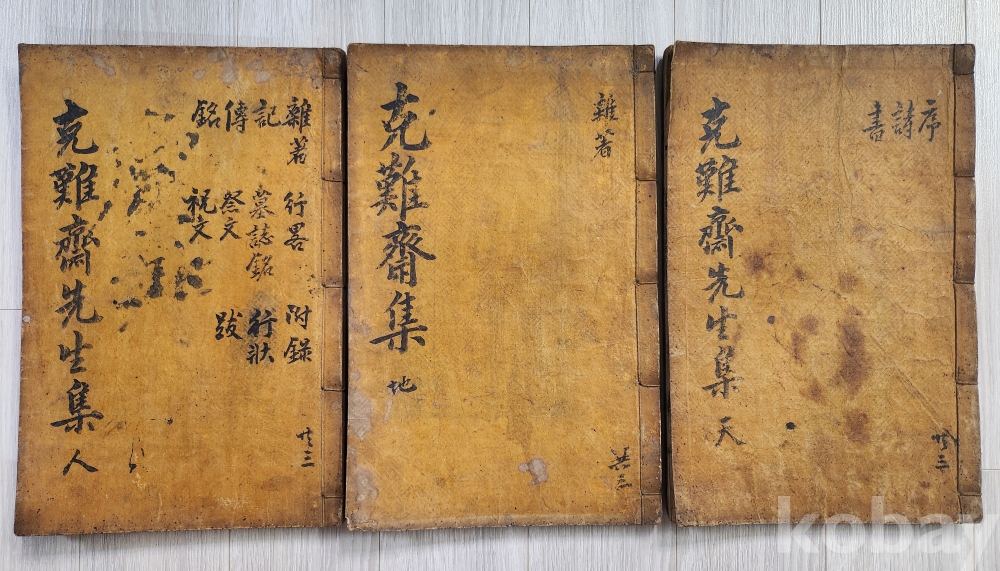 序
詩
書
克難齋先生集 天
共三
雜著
克難齋集 地
共三
雜著 行畧 附錄
記 墓誌銘 行狀
傳 祭文 跋
銘 祝文
克難齋先生集 人
共三
kobay